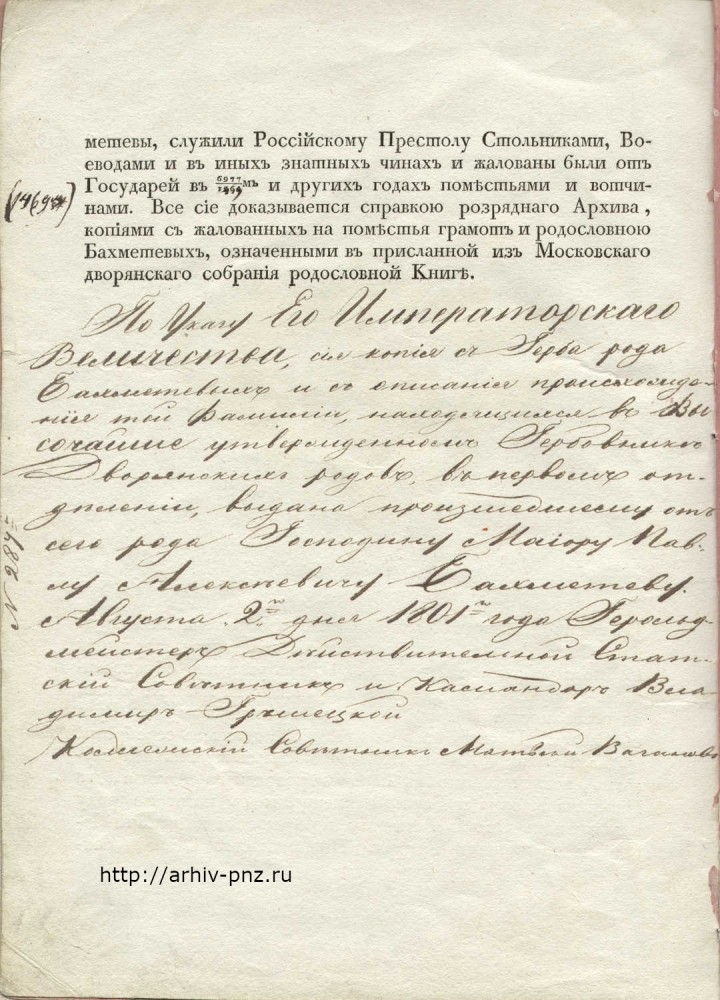 метевы, служили Россійскому Престолу Стольниками, Во-
еводами и въ иныхъ знатныхъ чинахъ и жалованы были отъ
Государей въ 6977/1469мъ и другихъ годахъ помѣстьями и вотчи-
нами. Все сіе доказывается справкою розряднаго Архива,
копіями съ жалованныхъ на помѣстья грамотъ и родословною
Бахметевыхъ, означенными въ присланной изъ Московскаго
дворянскаго собранія родословной Книгѣ.
(1469)
По Указу Его Императорскаго
Величества, сія копія съ Герба рода
Бахметевыхъ и съ описанія происхожде-
нія той Фамиліи, находящихся въ Вы
сочайше утвержденномъ Гербовнике
Дворянскихъ родовъ, въ первомъ от-
дѣленіи, выдана произшедшему отъ
сего рода Господину Маіору Пав-
лу Алексѣевичу Бахметеву.
Августа 2го дня 1801го года Герольд
мейстеръ Дѣйствительной Стат-
скій Совѣтникъ и Командоръ Вла-
димиръ Грушецкой
Коллежскій Совѣтникъ Матвѣй
N 287
http://arhiv-pnz.ru